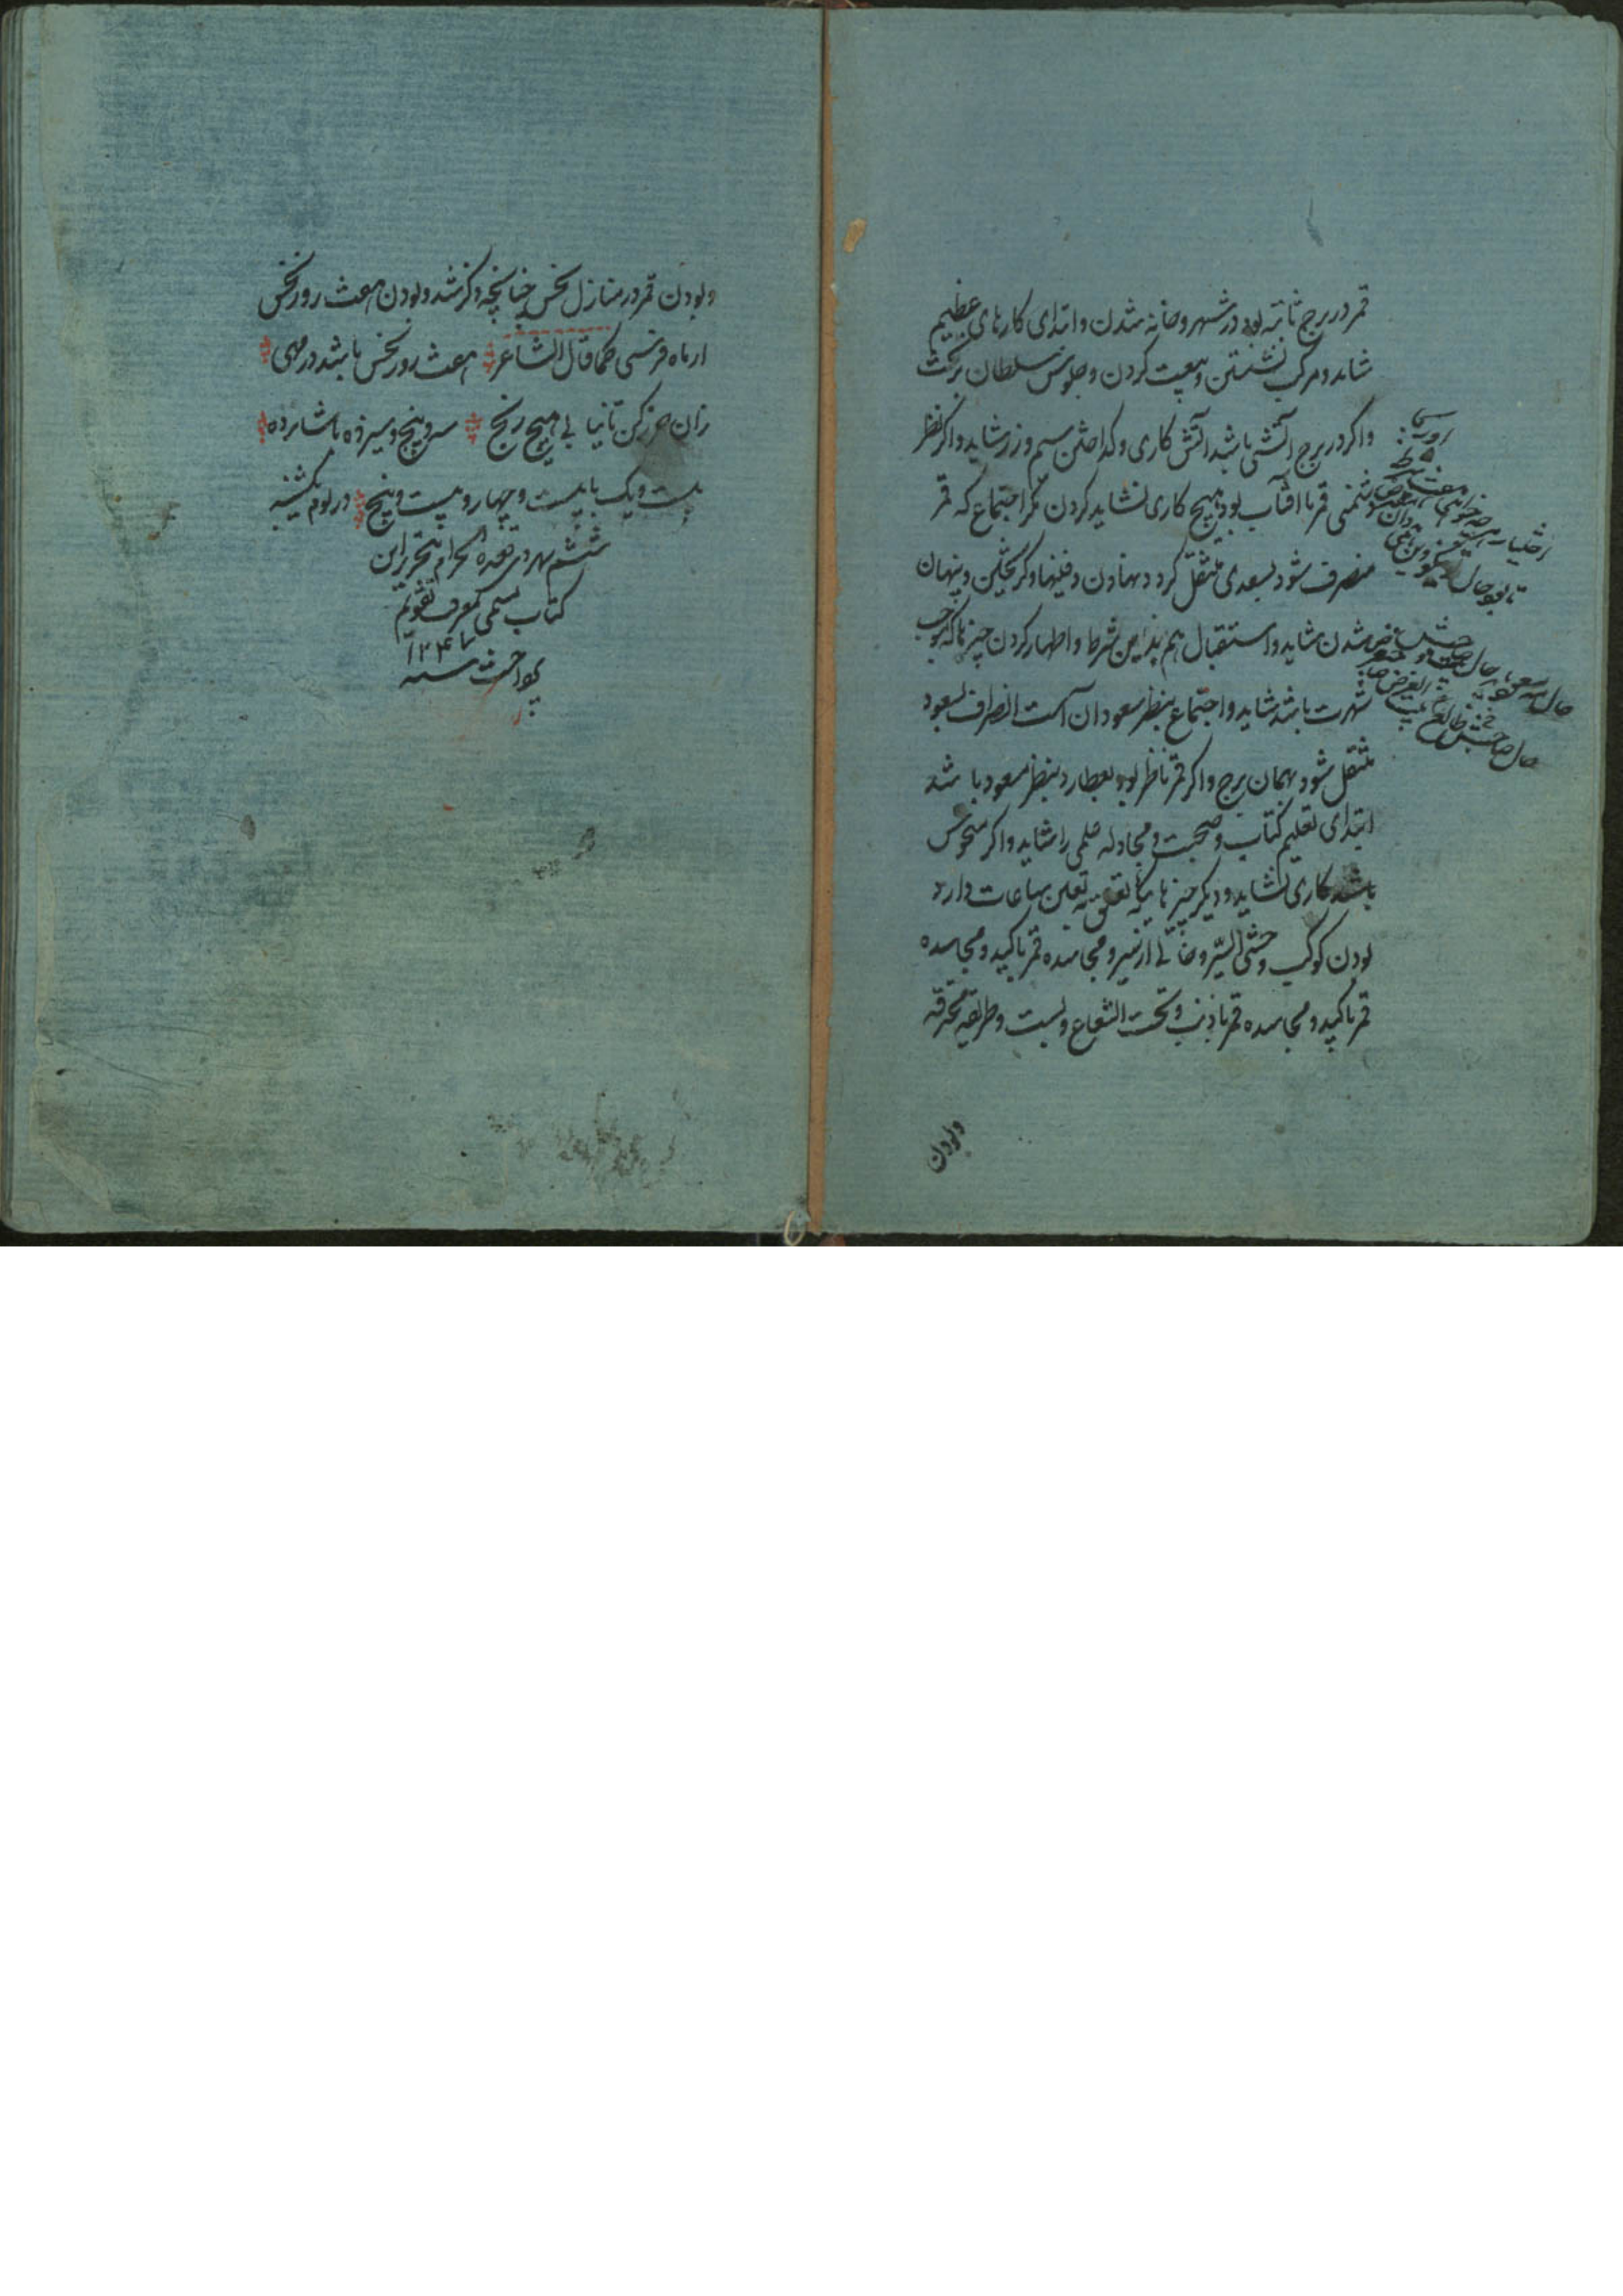 قمر در برج ثابته بود در شهر و خانه شدن و ابتدای کارهای عظیم
شاید و مرکب نشستن و بیعت کردن و جلوس سلطان بر تخت
و اگر در برج آتشی باشد آتش کاری و گداختن سیم و زر شاید و اگر نظر
دشمنی قمر با آفتاب بود هیچ کاری نشاید کردن مگر اجتماع که قمر
منصرف شود بسعدی منتقل گردد نهادن دفینها و گریختن و پنهان
شدن شاید و استقبال هم بذاین شرط و اظهار کردن چیزها که موجب
شهرت باشد شاید و اجتماع بنظر سعود آن است انصراف بسعود
منتقل شود بهمان برج و اگر قمر ناظر بود بعطارد بنظر سعود باشد
ابتدای تعلیم کتاب و صحبت و مجادله علمی را شاید و اگر منحوس
باشد کاری نشاید و دیگر چیزهاییکه تعلق به تعین ساعات دارد
بودن کوکب وحشی السیر و خالی از سیر و مجاسده قمر با کید و مجاسده
قمر با کید و مجاسده قمر با ذنب و تحت الشعاع و بست و طریقه محترقه
و بودن
اختیار
تا بود حال
حال صاحبش طالع
و بودن قمر در منازل نحس چنانچه ذکر شد و بودن هفت روز نحس
از ماه فرسی کما قال الشاعر هفت روز نحس باشد در مهی
زان حذر کن تا نیابی هیچ رنج سه و پنج و سیزده با شانزده
بیست و یک با بیست و چهار و بیست و پنج در یوم یکشنبه
ششم شهر ذی قعده الحرام تحریر این
کتاب مسمی بمعرفة تقویم
پرداخت سنه ۱۲۴۷